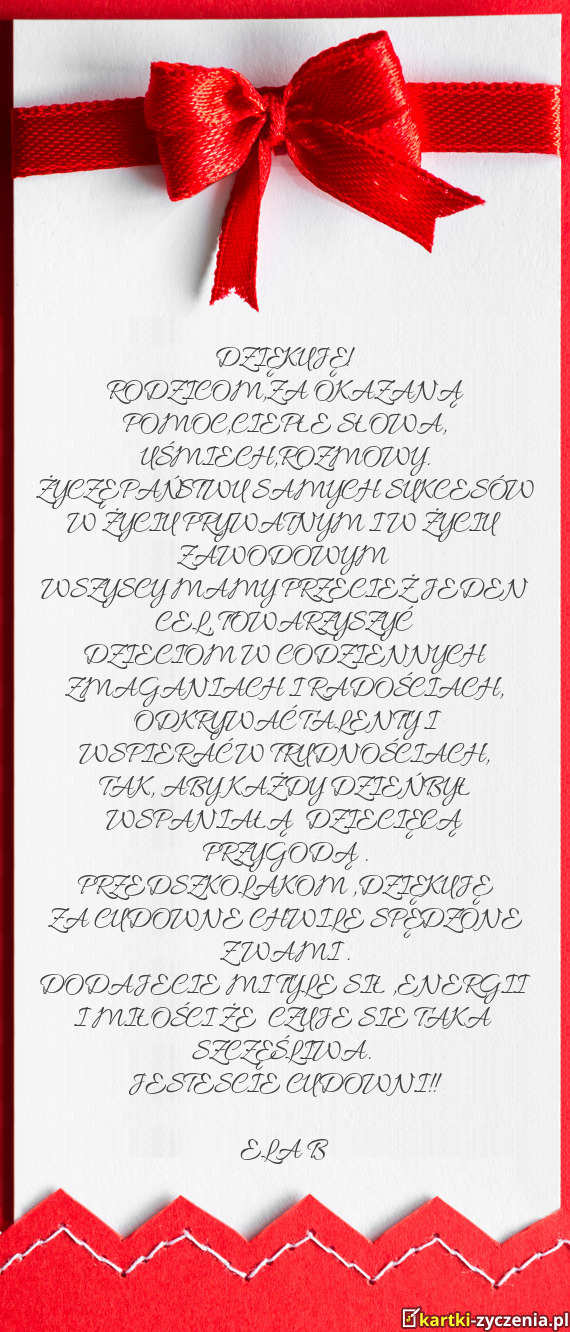 DZIĘKUJĘ!
RODZICOM,ZA OKAZANĄ
POMOC,CIEPŁE SŁOWA,
UŚMIECH,ROZMOWY.
ŻYCZĘ PAŃSTWU SAMYCH SUKCESÓW
W ŻYCIU PRYWATNYM I W ŻYCIU
ZAWODOWYM
WSZYSCY MAMY PRZECIEŻ JEDEN
CEL, TOWARZYSZYĆ
DZIECIOM W CODZIENNYCH
ZMAGANIACH I RADOŚCIACH,
ODKRYWAĆ TALENTY I
WSPIERAĆ W TRUDNOŚCIACH,
TAK, ABY KAŻDY DZIEŃ BYŁ
WSPANIAŁĄ DZIECIĘCĄ
PRZYGODĄ .
PRZEDSZKOLAKOM ,DZIĘKUJĘ
ZA CUDOWNE CHWILE SPĘDZONE
Z WAMI .
DODAJECIE MI TYLE SIŁ ,ENERGII
I MIŁOŚCI ŻE CZUJE SIE TAKA
SZCZĘŚLIWA.
JESTEŚCIE CUDOWNI!!
ELA B
kartki-zyczenia.pl